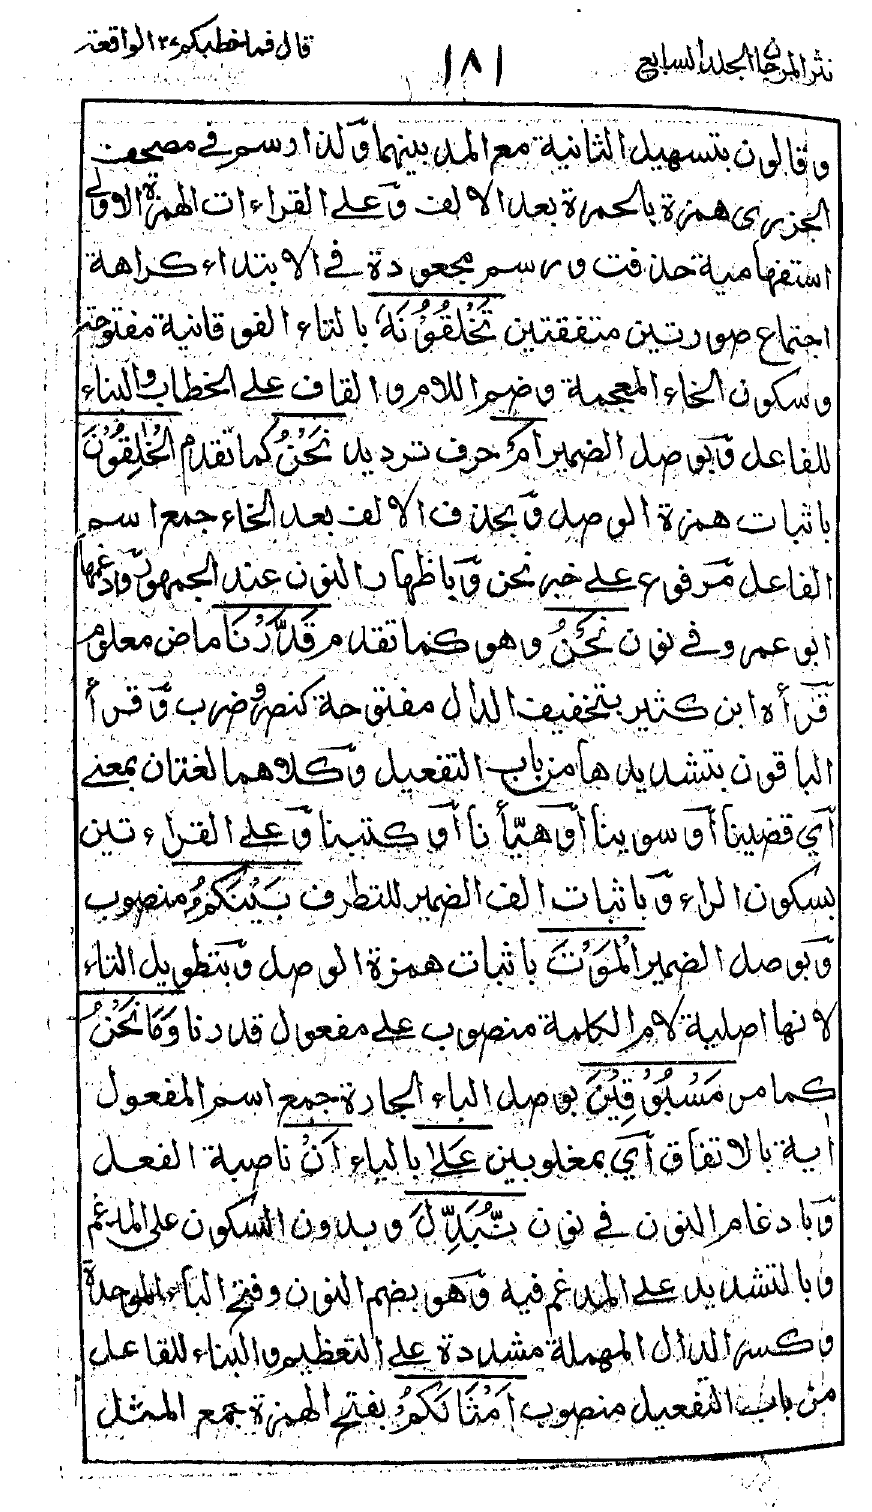 نثر المرجان الجلد السابع
١٨١
قال فما خطبكم ٢٧ الواقعة
وقالون بتسهيل الثانية مع المد بينهما ولذا رسم في مصحف
الجزرى همزة بالحمرة بعد الالف وعلى القراءات الهمزة الاولى
استفهامية حذفت ورسم مجعودة في الابتداء كراهة
اجتماع صورتين متفقتين تَخْلُقُوْنَهٗ بالتاء الفوقانية مفتوحة
وسكون الخاء المعجمة وضم اللام والقاف على الخطاب والبناء
للفاعل وبوصل الضمير اَمْ حرف ترديد نَحْنُ كما تقدم الْخٰلِقُوْنَ
باثبات همزة الوصل وبحذف الالف بعد الخاء جمع اسم
الفاعل مرفوع على خبر نحن وباظهار النون عند الجمهور وادغمها
ابو عمرو في نون نَحْنُ وهو كما تقدم قَدَّرْنَا ماض معلوم
قرأه ابن كثير بتخفيف الدال مفتوحة كنصر وضرب وقرأ
الباقون بتشديدها من باب التفعيل وكلاهما لغتان بمعنى
أي قضينا أو سوينا أو هيّأنا أو كتبنا وعلى القراءتين
بسكون الراء وباثبات الف الضمير للتطرف بَيْنَكُمُ منصوب
وبوصل الضمير الْمَوْتَ باثبات همزة الوصل وبتطويل التاء
لانها اصلية لام الكلمة منصوب على مفعول قدرنا وَمَا نَحْنُ
كما مر بِمَسْبُوْقِيْنَ بوصل الباء الجارة جمع اسم المفعول
اية بالاتفاق أي بمغلوبين عَلٰى بالياء اَنْ ناصبة الفعل
وبادغام النون في نون نُّبَدِّلَ وبدون السكون على المدغم
وبالتشديد على المدغم فيه وهو بضم النون وفتح الباء الموحدة
وكسر الدال المهملة مشددة على التعظيم والبناء للفاعل
من باب التفعيل منصوب اَمْثَالَكُمْ بفتح الهمزة جمع المثل